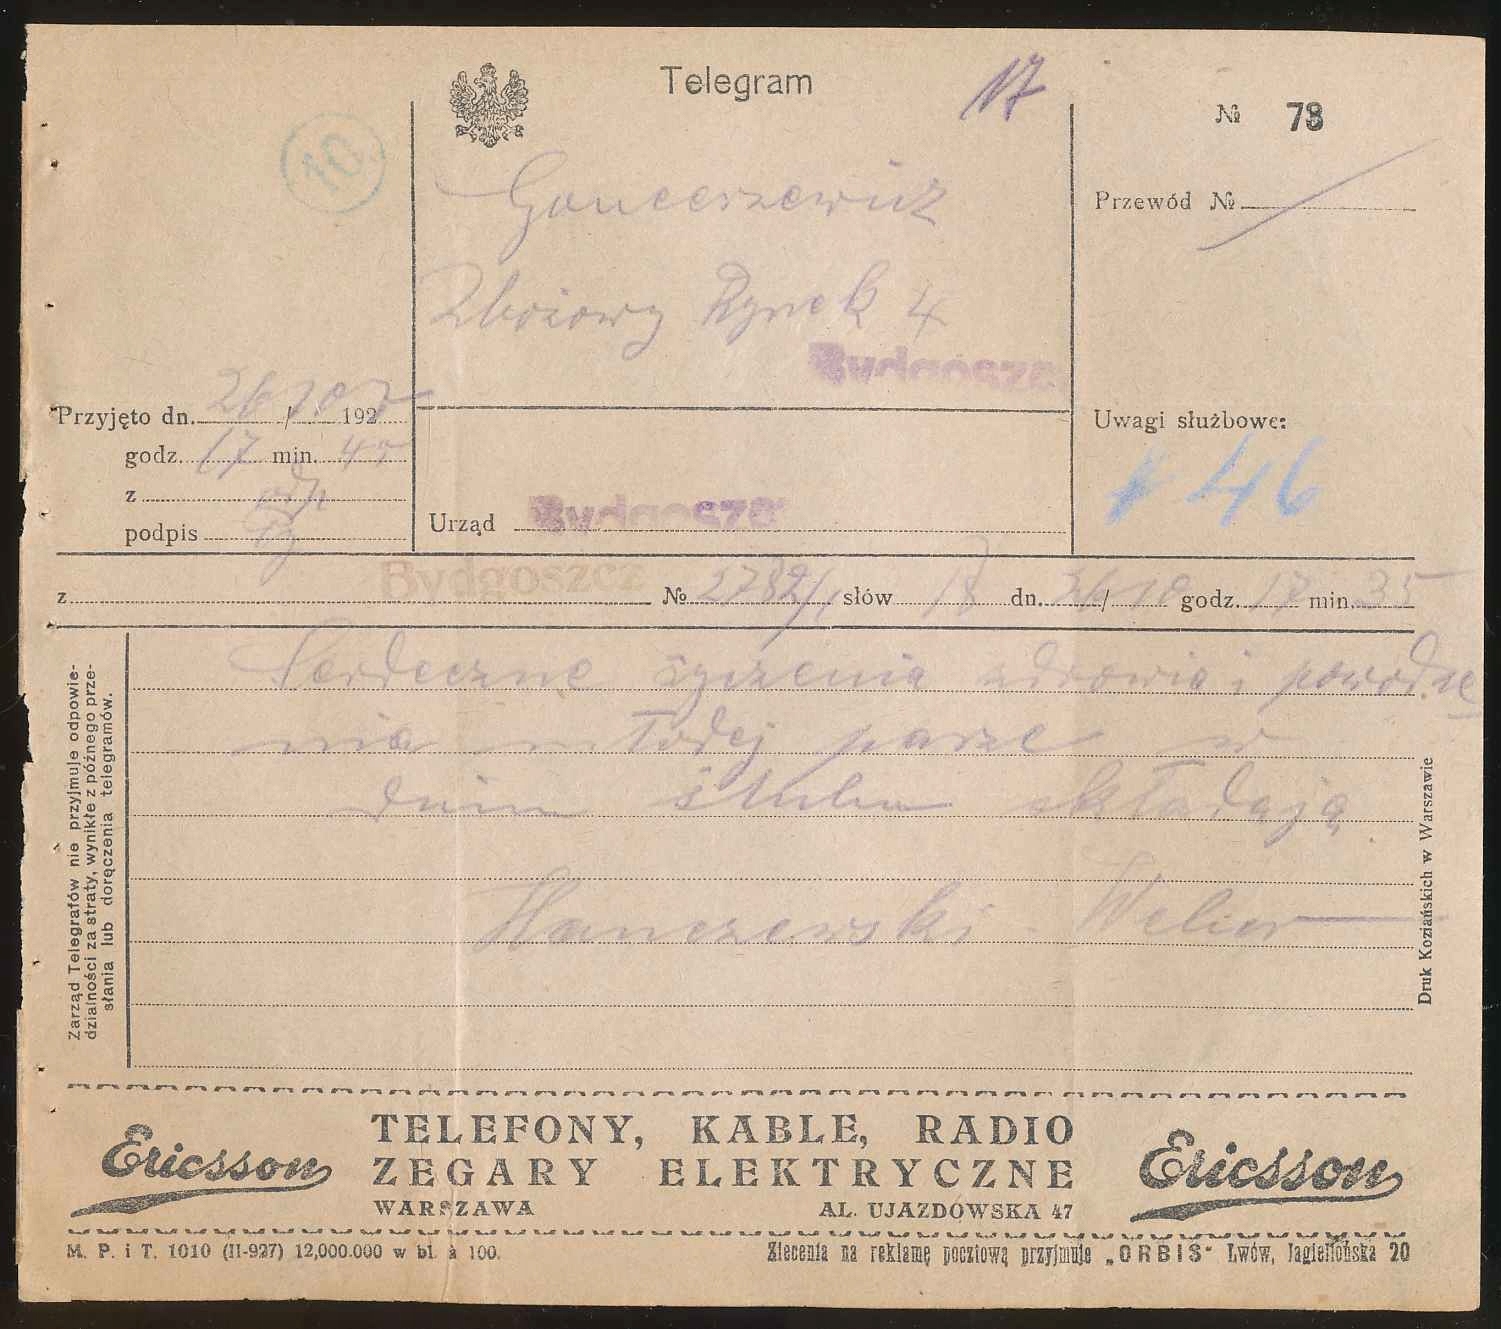 Telegram
17
№ 78
10
Goncerzewicz
Przewód №
Zbożowy Rynek 4
Bydgoszcz
Przyjęto dn. 26/10 1927
godz. 17 min. 45
z
podpis
Uwagi służbowe:
46
Urząd Bydgoszcz
z Bydgoszcz № 2782/1 słów 18 dn. 26/10 godz. 17 min. 35
Serdeczne życzenia zdrowia i powodze
nia młodej parze w
dniu ślubu składają
Hanczewski Weber
Zarząd Telegrafów nie przyjmuje odpowie-
dzialności za straty, wynikłe z późnego prze-
słania lub doręczenia telegramów.
Druk Koziańskich w Warszawie
Ericsson
TELEFONY, KABLE, RADIO
ZEGARY ELEKTRYCZNE
WARSZAWA AL. UJAZDOWSKA 47
Ericsson
M. P. i T. 1010 (II-927) 12,000.000 w bl. à 100.
Zlecenia na reklamę pocztową przyjmuje „ORBIS" Lwów, Jagiellońska 20